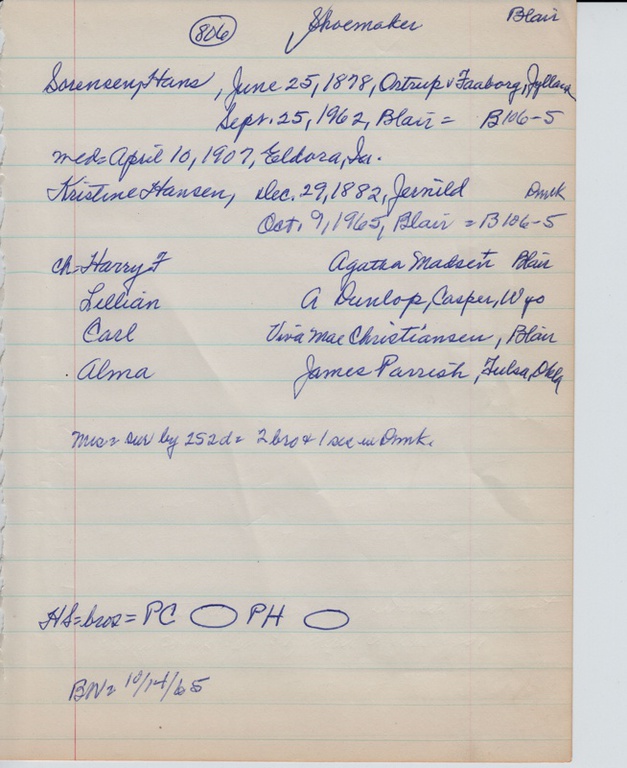 806 Shoemaker Blair
Sorensen, Hans, June 25, 1878, Ostrup v Faaborg, Jylland
Sept. 25, 1962, Blair = B106-5
med = April 10, 1907, Eldora, Ia.
Kristine Hansen, Dec. 29, 1882, Jernild Dmk
Oct. 9, 1965, Blair = B106-5
ch = Harry F Agatha Madsen Blair
Lillian A Dunlop, Casper, Wyo
Carl Viva Mae Christiansen, Blair
Alma James Parrish, Tulsa, Okla
Mrs = sur by 2s2d = 2 bro & 1 sis in Dmk.
HS = bros = PC PH
BN = 10/14/65